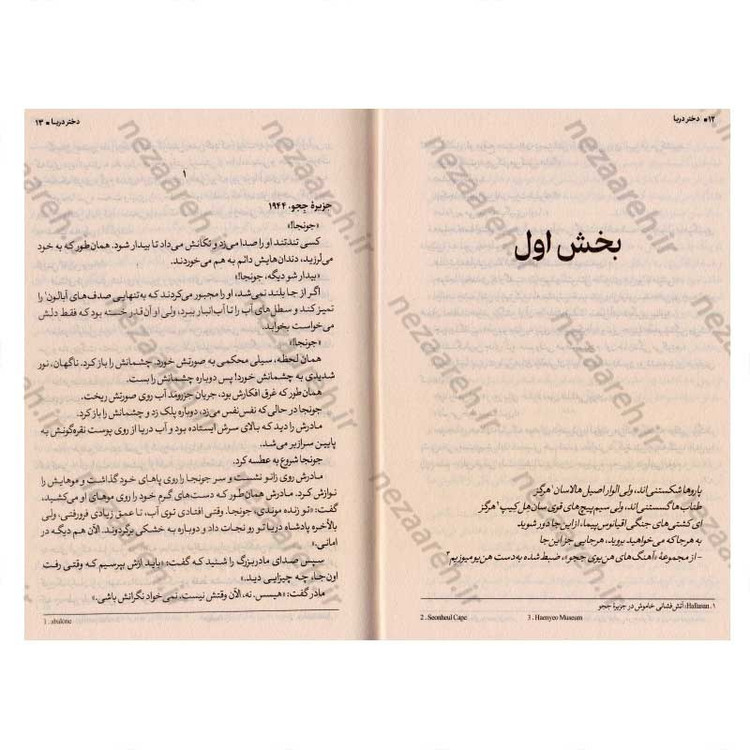 ۱۲ ■ دختر دریا
بخش اول
پاروها شکستنی‌اند، ولی الوار اصیل هالاسان¹ هرگز
طناب‌ها گسستنی‌اند، ولی سیم‌پیچ‌های قوی سان‌هل کیپ² هرگز
ای کشتی‌های جنگی اقیانوس‌پیما، از این‌جا دور شوید
به هر جا که می‌خواهید بروید، هر جایی جز این‌جا
- از مجموعهٔ «آهنگ‌های هن‌یوی ججو»، ضبط شده به دست هن‌یو میوزیم³
۱. Hallasan: آتش‌فشانی خاموش در جزیرهٔ ججو
2 . Seonheul Cape 3 . Haenyeo Museum
دختر دریا ■ ۱۳
۱
جزیرهٔ ججو، ۱۹۴۴
«جونجا!»
کسی تندتند او را صدا می‌زد و تکانش می‌داد تا بیدار شود. همان‌طور که به خود
می‌لرزید، دندان‌هایش دائم به هم می‌خوردند.
«بیدار شو دیگه، جونجا!»
اگر از جا بلند نمی‌شد، او را مجبور می‌کردند که به‌تنهایی صدف‌های آبالون¹ را
تمیز کند و سطل‌های آب را تا آب‌انبار ببرد، ولی او آن‌قدر خسته بود که فقط دلش
می‌خواست بخوابد.
«جونجا!»
همان لحظه، سیلی محکمی به صورتش خورد. چشمانش را باز کرد. ناگهان، نور
شدیدی به چشمانش خورد! پس دوباره چشمانش را بست.
همان‌طور که غرق افکارش بود، جریان جزرومد آب روی صورتش ریخت.
جونجا در حالی که نفس‌نفس می‌زد، دوباره پلک زد و چشمانش را باز کرد.
مادرش را دید که بالای سرش ایستاده بود و آب دریا از روی پوست نقره‌گونش به
پایین سرازیر می‌شد.
جونجا شروع به عطسه کرد.
مادرش روی زانو نشست و سر جونجا را روی پاهای خود گذاشت و موهایش را
نوازش کرد. مادرش همان‌طور که دست‌های گرم خود را روی موهای او می‌کشید،
گفت: «تو زنده موندی، جونجا. وقتی افتادی توی آب، تا عمق زیادی فرورفتی، ولی
بالاخره پادشاه دریا تو رو نجات داد و دوباره به خشکی برگردوند. الآن هم دیگه در
امانی.»
سپس صدای مادربزرگ را شنید که گفت: «باید ازش بپرسیم که وقتی رفت
اون‌جا، چه چیزایی دید.»
مادر گفت: «هیسس. نه، الآن وقتش نیست، نمی‌خواد نگرانش باشی.»
1 . abalone
nezaareh.ir